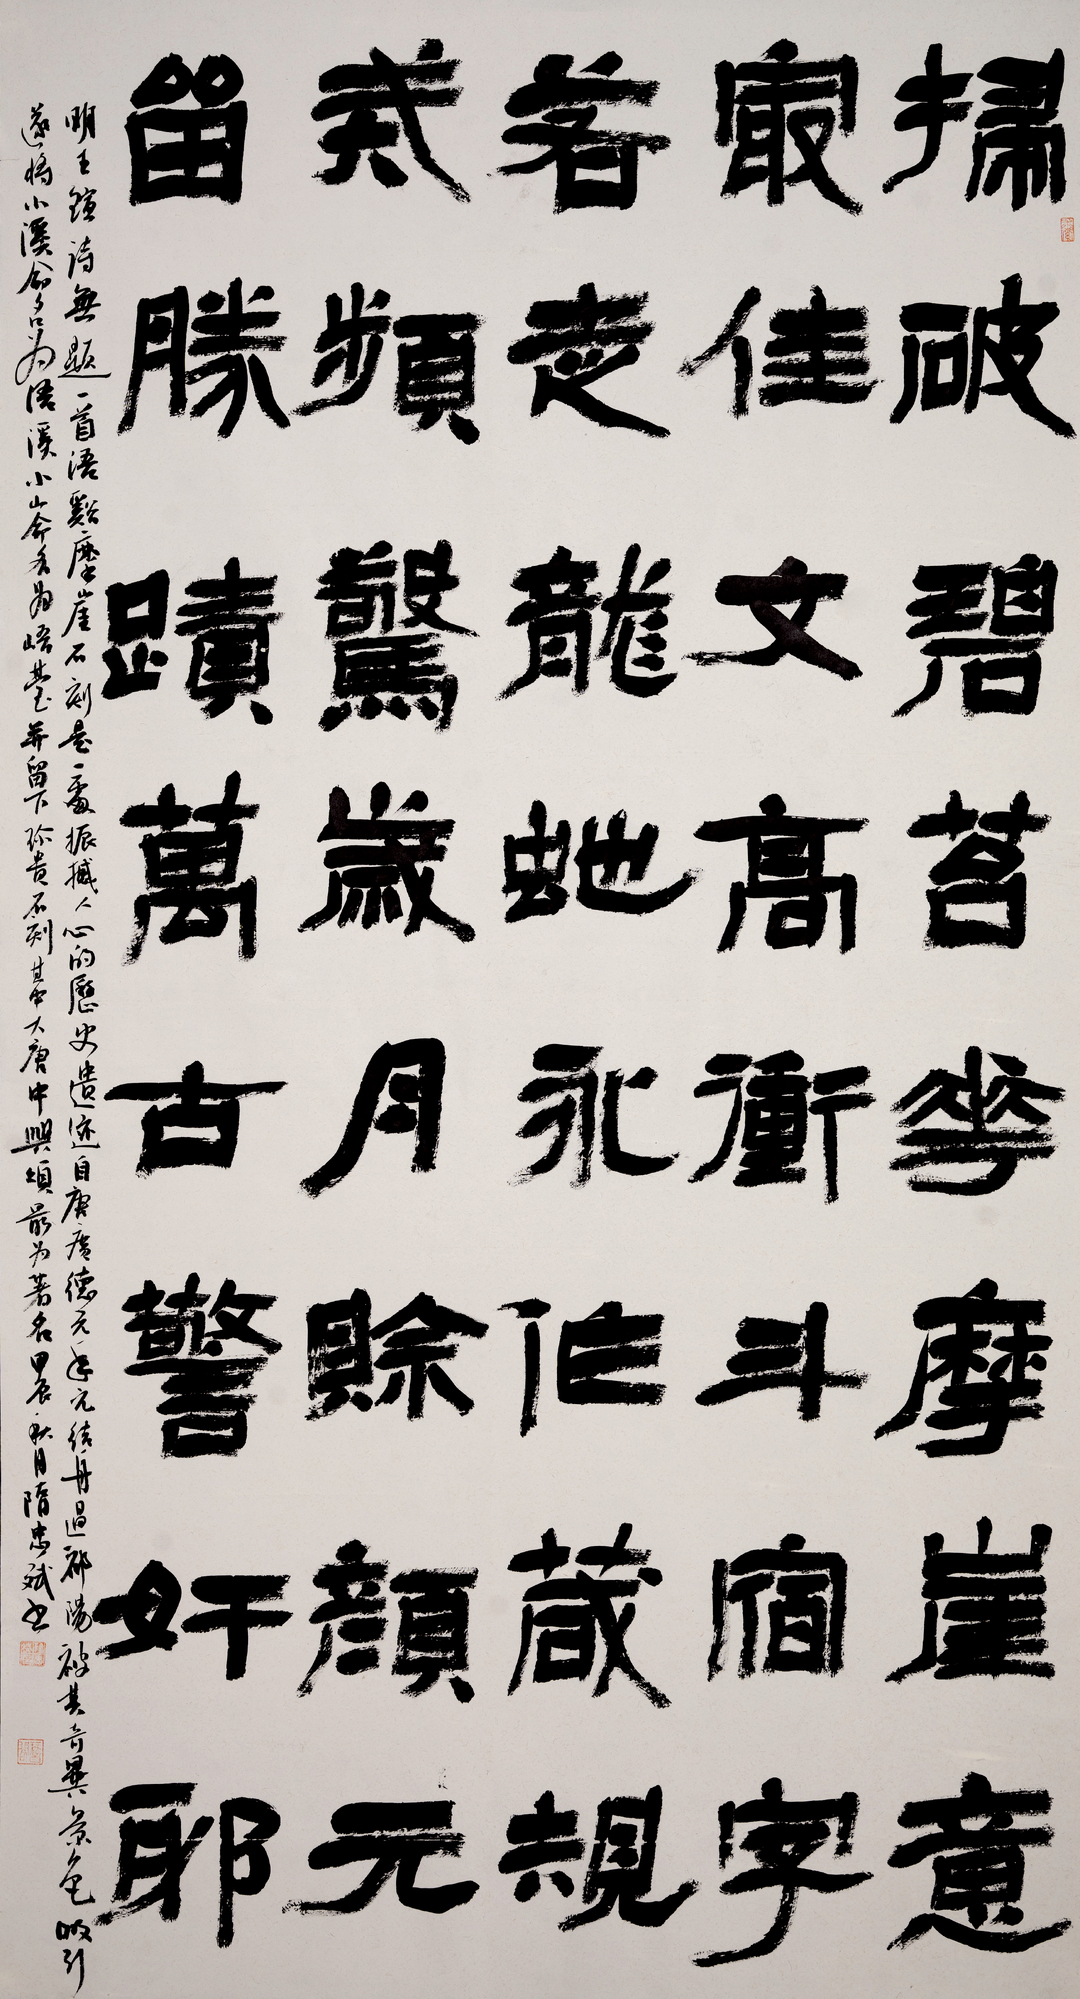 掃破碧苔華摩崖意
冣佳文高衝斗宿字
若走龍虵永作箴規
式頻驚歲月賒顏元
留勝蹟萬古警奸邪
明王鍹詩無題一首浯谿摩崖石刻是一處振撼人心的歷史遺迹自唐廣德元年元結舟過祁陽被其奇異景色吸引
遂將小溪命名为浯溪小山命名為峿臺并留下珍貴石刻其中大唐中興頌最为著名甲辰秋月隋忠斌书